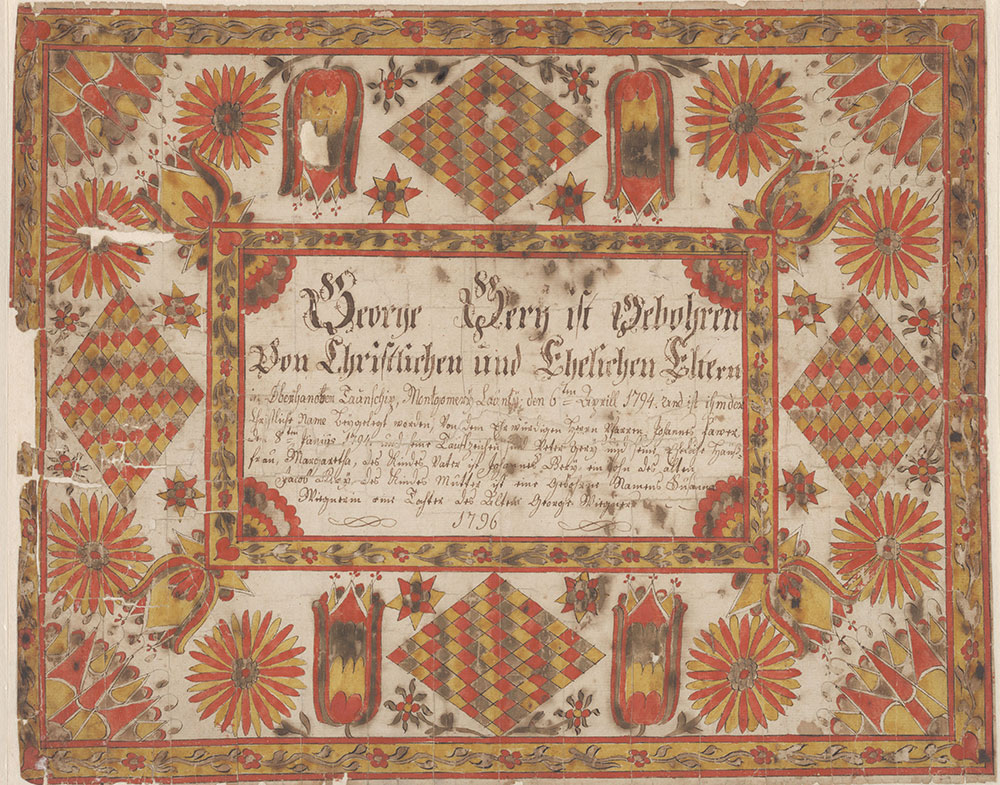 George Gery ist Gebohren
Von Christlichen und Ehelichen Eltern
in Oberhanover Taunschip, Montgomery County, den 6ten April 1794. und ist ihm der
Christliche Name beygelegt worden, Von dem Ehrwürdigen Herrn Pfarrer, Johannes
den 8ten Junius 1794 und seine Taufzeugen Peter Gery und seine Haus-
frau, Margaretha, des Kindes Vater ist Johannes Gery ein Sohn des alten
Jacob Gery des Kindes Mutter ist eine Gebohrne Namens Susanna
eine Tochter des alten George
1796